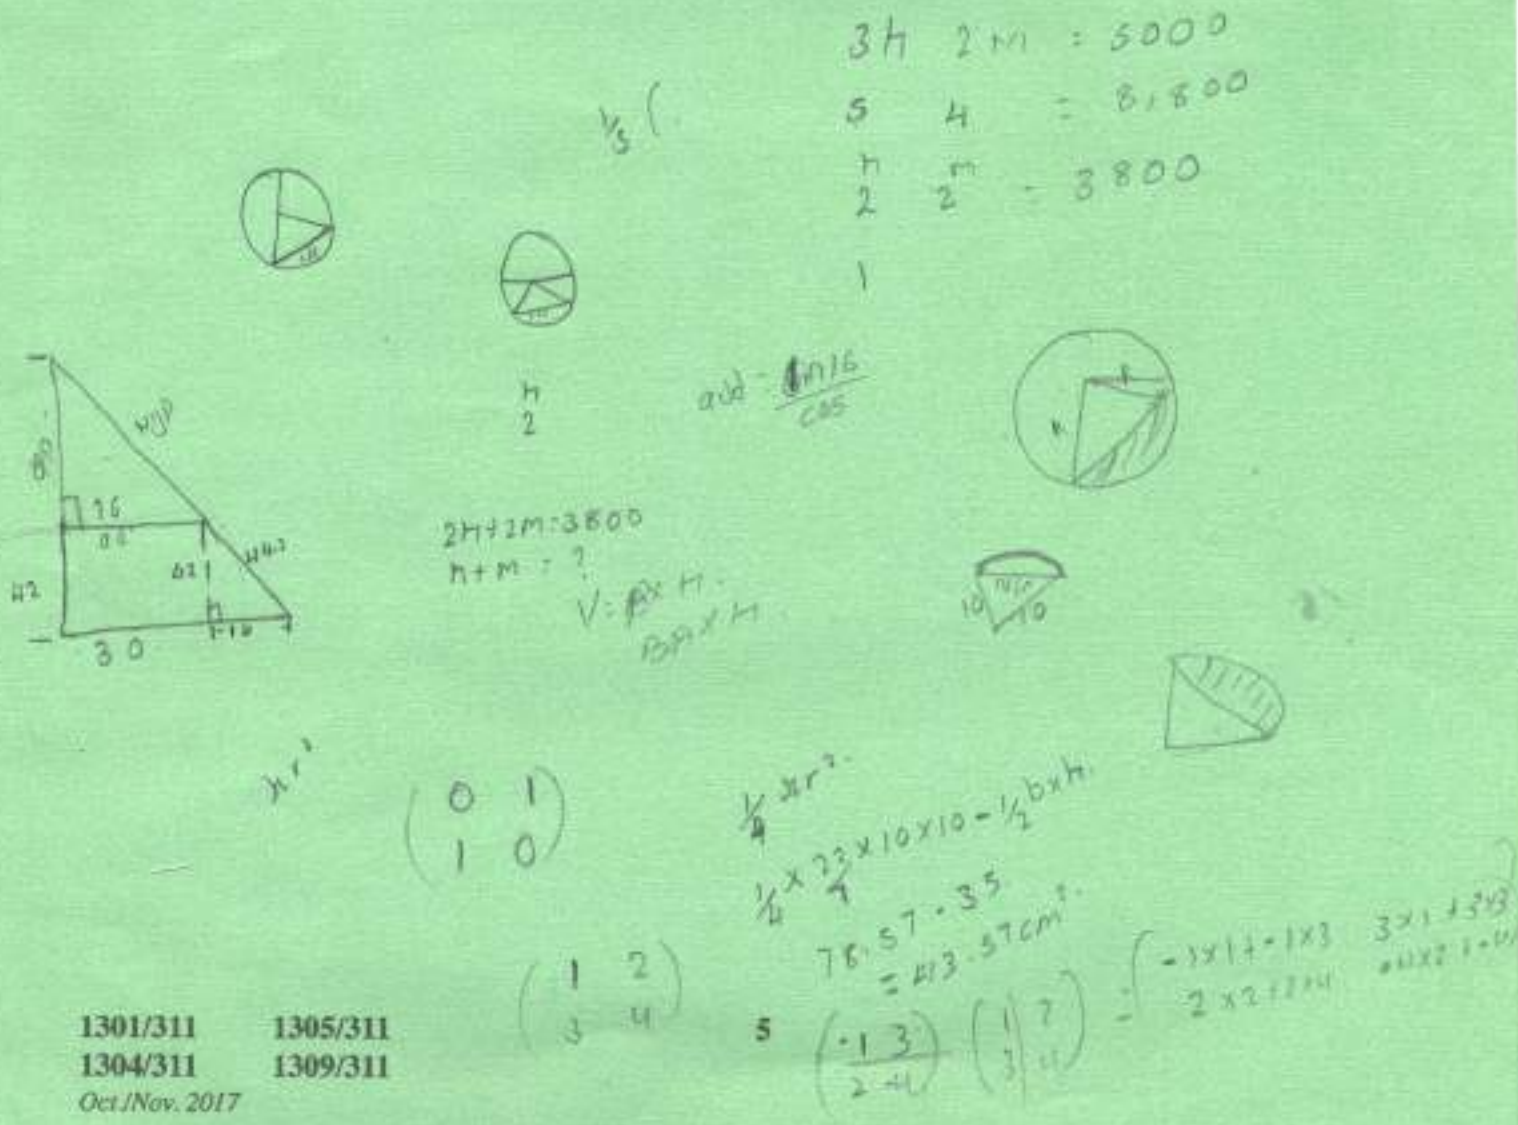 3h 2m = 5000
1/3 (
5 4 = 8,800
h m
2 2 = 3800
1
h
2
cos
80
hyp
42
42
30
2h+2m=3800
h+m = ?
V= × H.
BA × H.
10 10
πr²
( 0 1
1 0 )
1/4 πr².
1/4 × 22/7 × 10×10 - 1/2 b×h.
78.57 - 35
= 43.57cm².
( 1 2
3 4 )
5
( -1 3
2 -4 ) ( 1 2
3 4 ) =
1301/311 1305/311
1304/311 1309/311
Oct./Nov. 2017